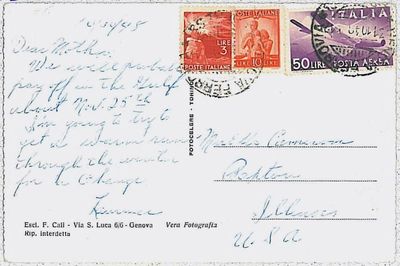 10/30/48
Dear Mother:
We will probably
pay off in the Gulf
about Nov. 25th
I'm going to try to
get a warm run
through the winter
for a change.
POSTE ITALIANE
LIRE 3
POSTE ITALIANE
LIRE 10 LIRE
ITALIA
50 LIRE POSTA AEREA
FOTOCELERE - TORINO
Ashton
Illinois
USA
Escl. F. Cali - Via S. Luca 6/6 - Genova
Vera Fotografia
Rip. interdetta